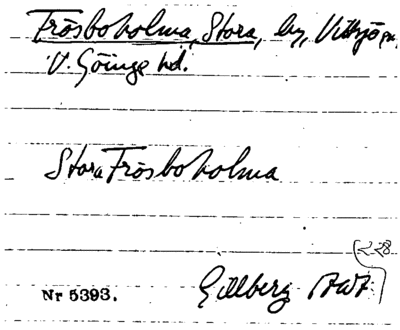 Frösboholma, Stora, by, Vittsjö sn,
V. Göinge hd.
Stora Frösboholma
228
Nr 5393. Gillberg